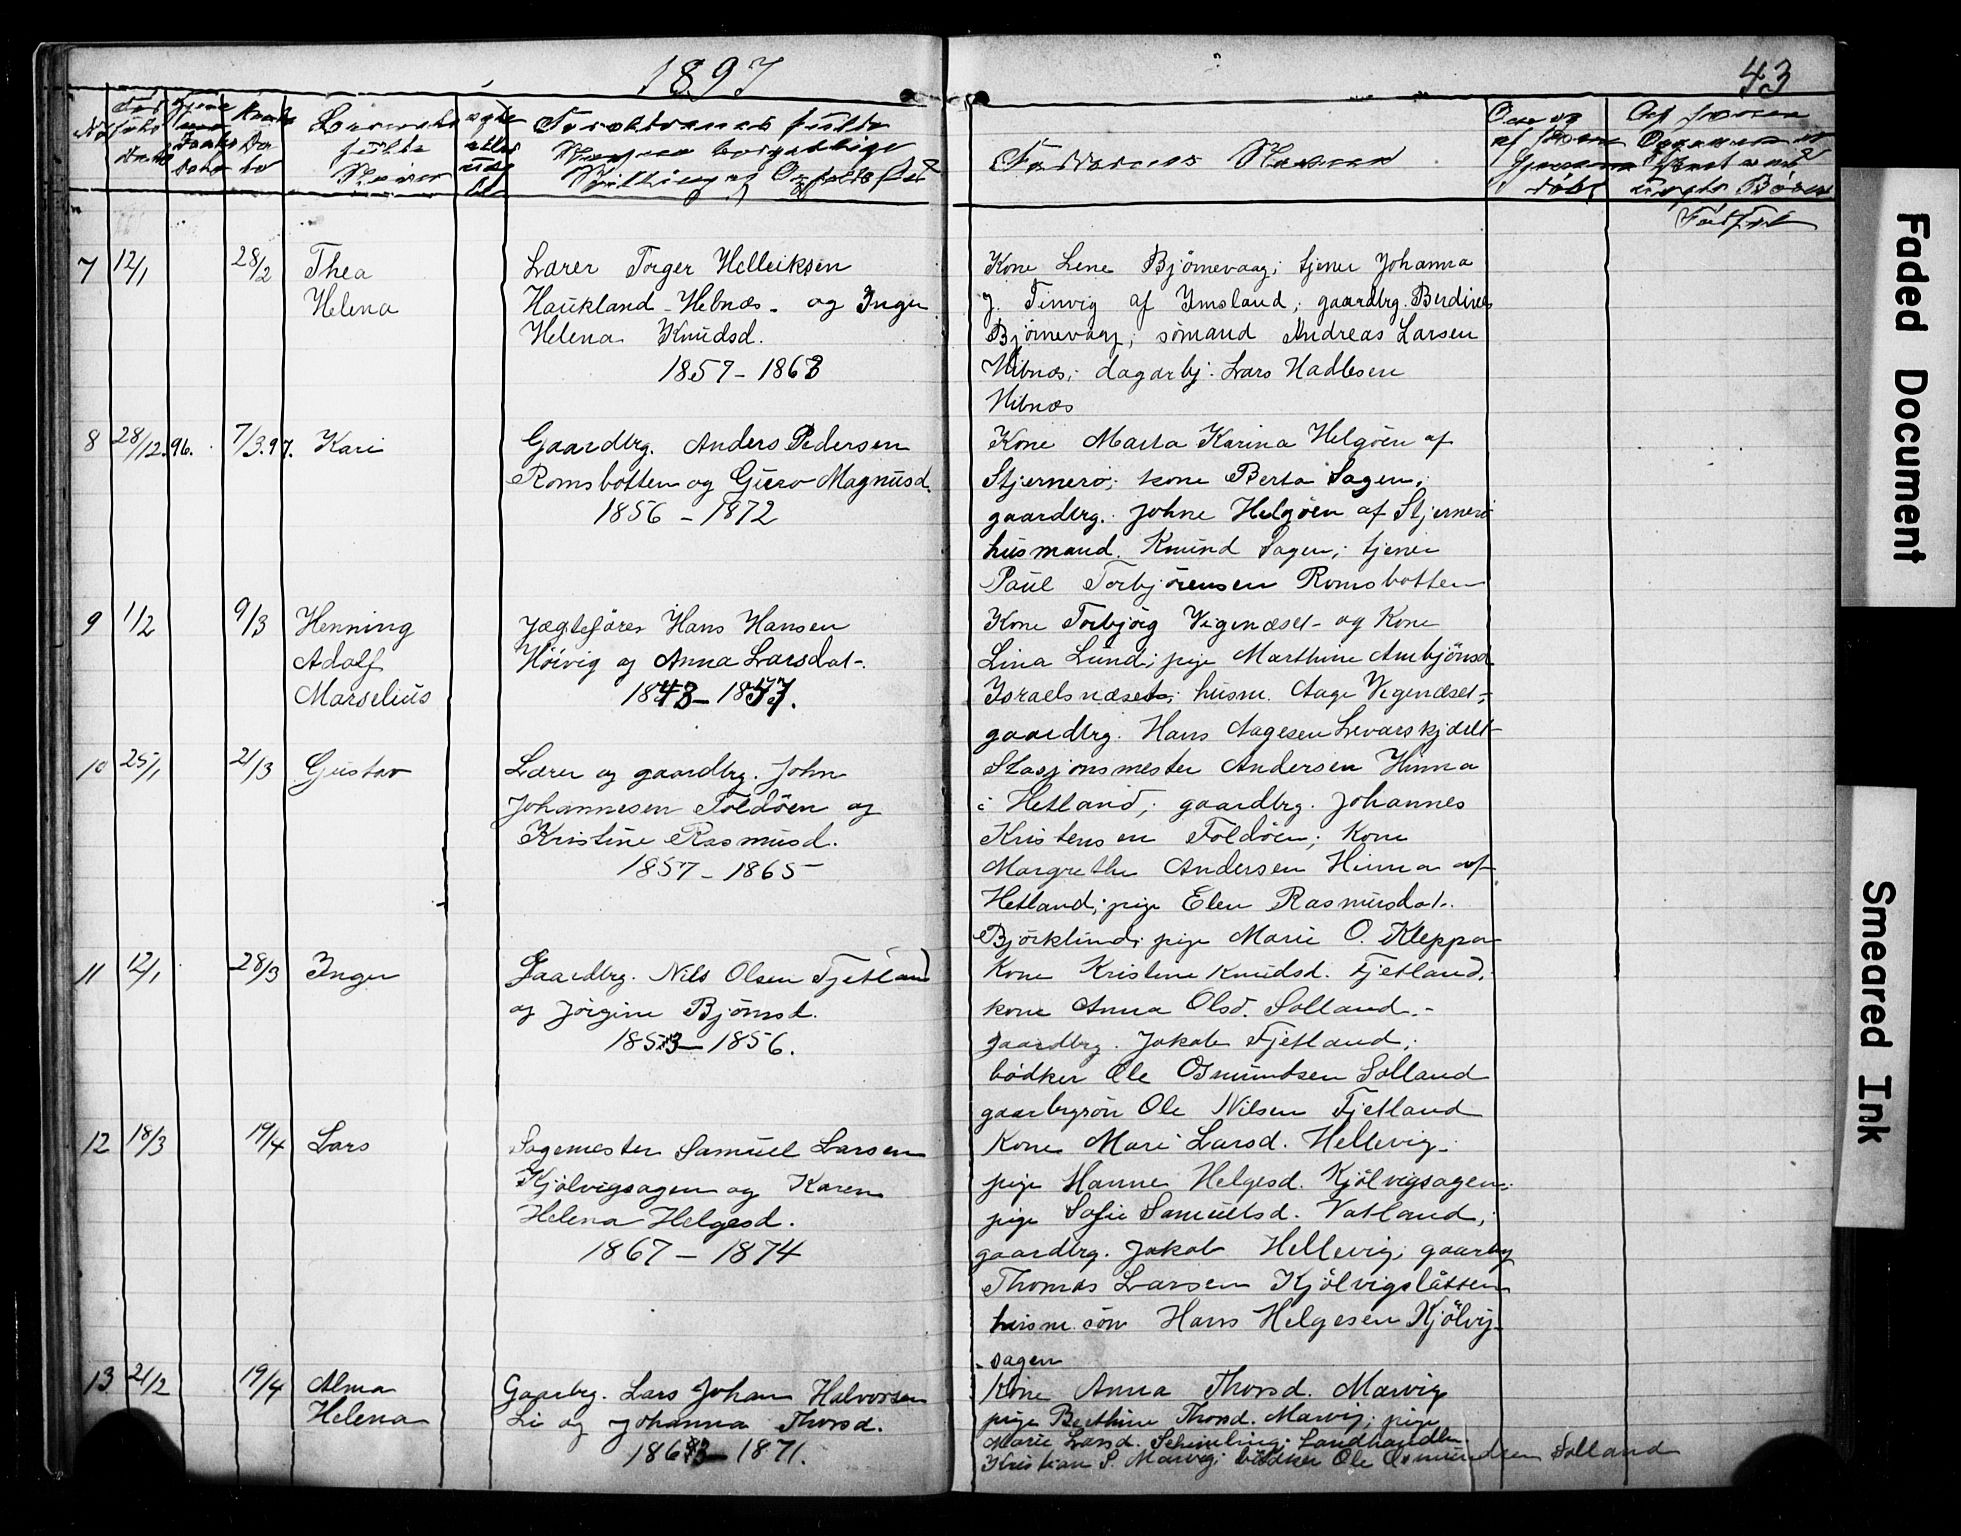 1897
43
No
Faddernes Navne
7 12/1 28/2 Thea Lærer Torger Helleiksen
Helena Haukland - Hebnæs - og Inger
Helena Knudsd.
1859 - 1863
Kone Lene Björnevaag; tjener Johanna
J. Tinvig af Imsland; gaardbrg. Berdines
Björnevaag; sömand Andreas Larsen
Hibnæs; dagarbj. Lars Hadlesen
Hibnæs
8 28/12.96. 7/3.97. Kari Gaardbrg. Anders Pedersen
Romsbotten og Guro Magnusd.
1856 - 1872
Kone Marta Karina Helgöen af
Stjernerö; kone Berta Sagen;
gaardbrg. Johne Helgöen af Stjernerö
husmand. Knud Sagen; tjener
Paul Torbjörensen Romsbotten
9 1/2 9/3 Henning Jægtefører Hans Hansen
Adolf Höivig og Anna Larsdat.
Marselius 1843 - 1857.
Kone Torbjörg Vigenæset og Kone
Lina Lund; pige Marthine Aubjönsd.
Israelsnæset; husm. Aage Vigenæset;
gaardbrg. Hans Aagesen Levarskjdelt
10 25/1 21/3 Gustav Lærer og gaardbrg. John
Johannesen Foldöen og
Kristine Rasmusd.
1857 - 1865
Stasjonsmester Andersen Hinna
i Hetland; gaardbrg. Johannes
Kristensen Foldöen; Kone
Margrethe Andersen Hinna af
Hetland; pige Elen Rasmusdat.
Björklund; pige Marie O. Kleppa
11 12/1 28/3 Inger Gaardbrg. Nils Olsen Fjetland
og Jörgine Björnsd.
1853 - 1856.
Kone Kristine Knudsd. Fjetland;
kone Anna Olsd. Solland.
gaardbrg. Jakob Fjetland;
bödker Ole Osmundsen Solland
gaarbrgsön Ole Nilsen Fjetland
12 18/3 19/4 Lars Sagemester Samuel Larsen
Kjölvigsagen og Karen
Helena Helgesd.
1867 - 1874
Kone Mari Larsd. Hellevig
pige Hanne Helgesd. Kjölvigsagen;
pige Sofie Samuelsd. Vatland;
gaardbrg. Jakob Hellevig; gaarbrg
Thomas Larsen Kjölvigslåtten
husm. sön Hans Helgesen Kjölvig
sagen
13 21/2 19/4 Alma Gaarbrg. Lars Johan Halvorsen
Helena Li og Johanna Thorsd.
1863 - 1871.
Kone Anna Thorsd. Marvig
pige Berthine Thorsd. Marvig; pige
Marie Larsd. Schimling; Landhandler
Kristian S. Marvig; bödker Ole Osmundsen Solland
Faded Document
Smeared Ink